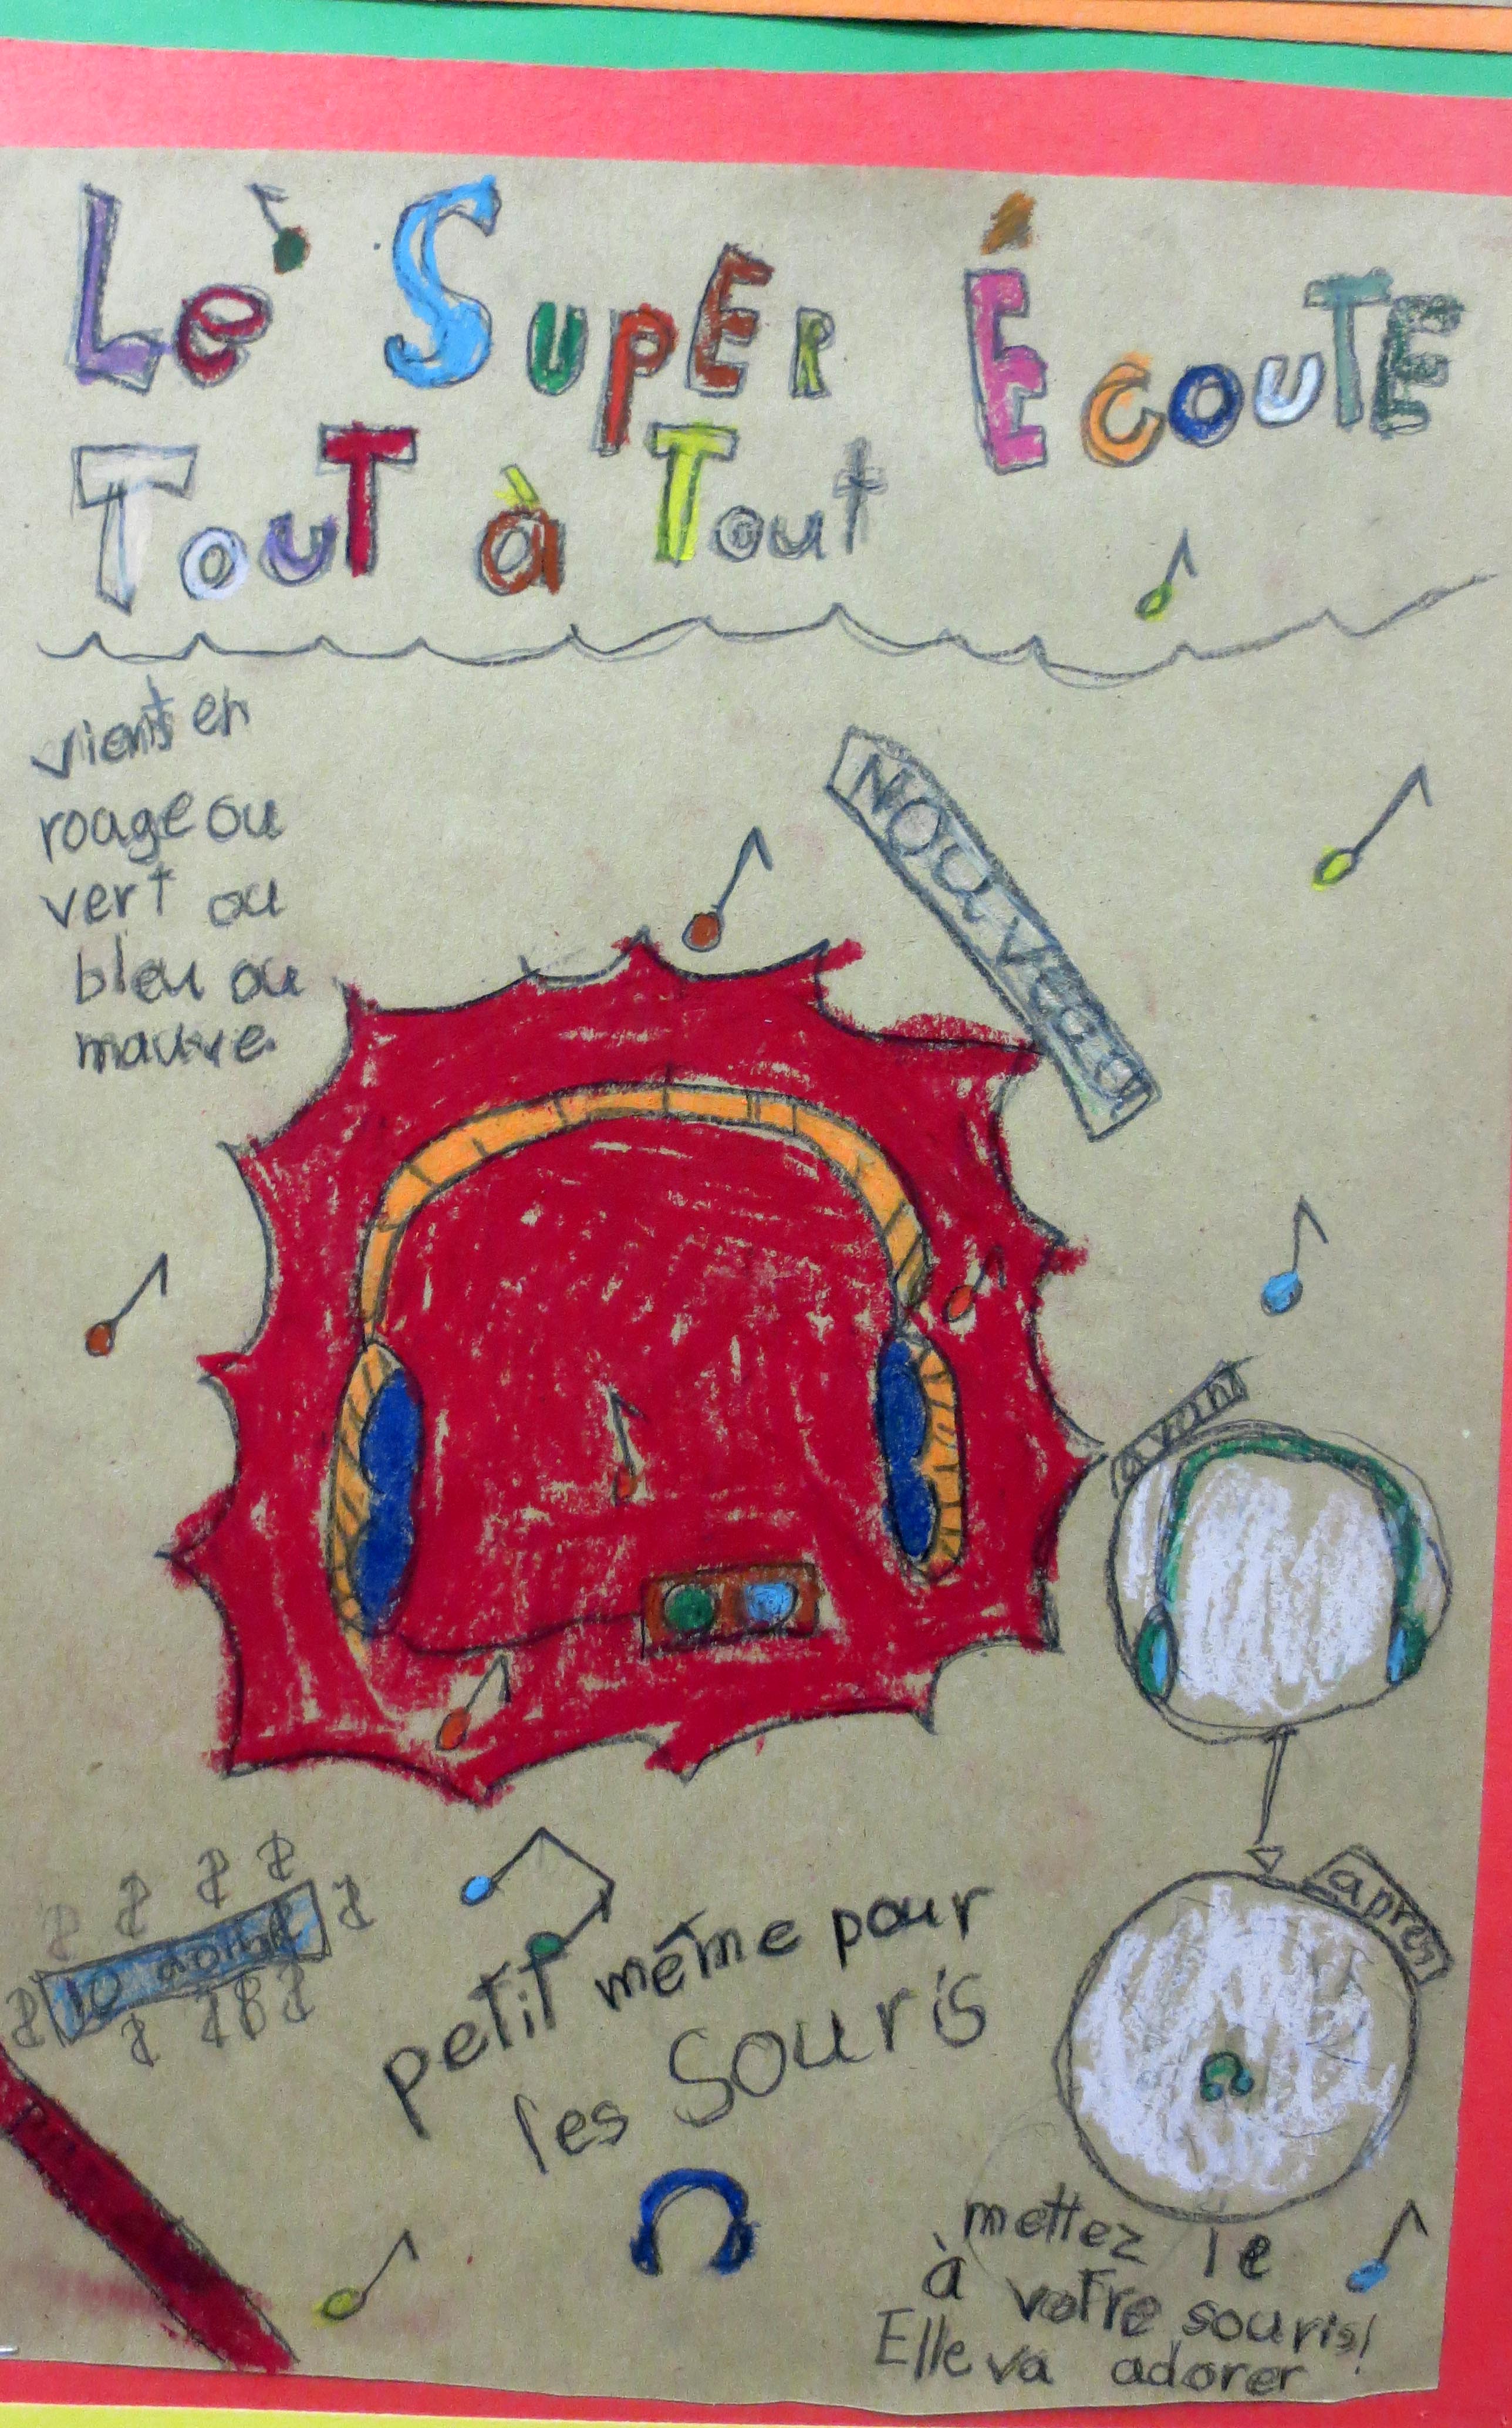 Le Super Écoute
Tout à Tout
vient en
rouge ou
vert ou
bleu ou
mauve
Nouveau
avant
après
10
petit même pour
les Souris
mettez le
à votre souris!
Elle va adorer